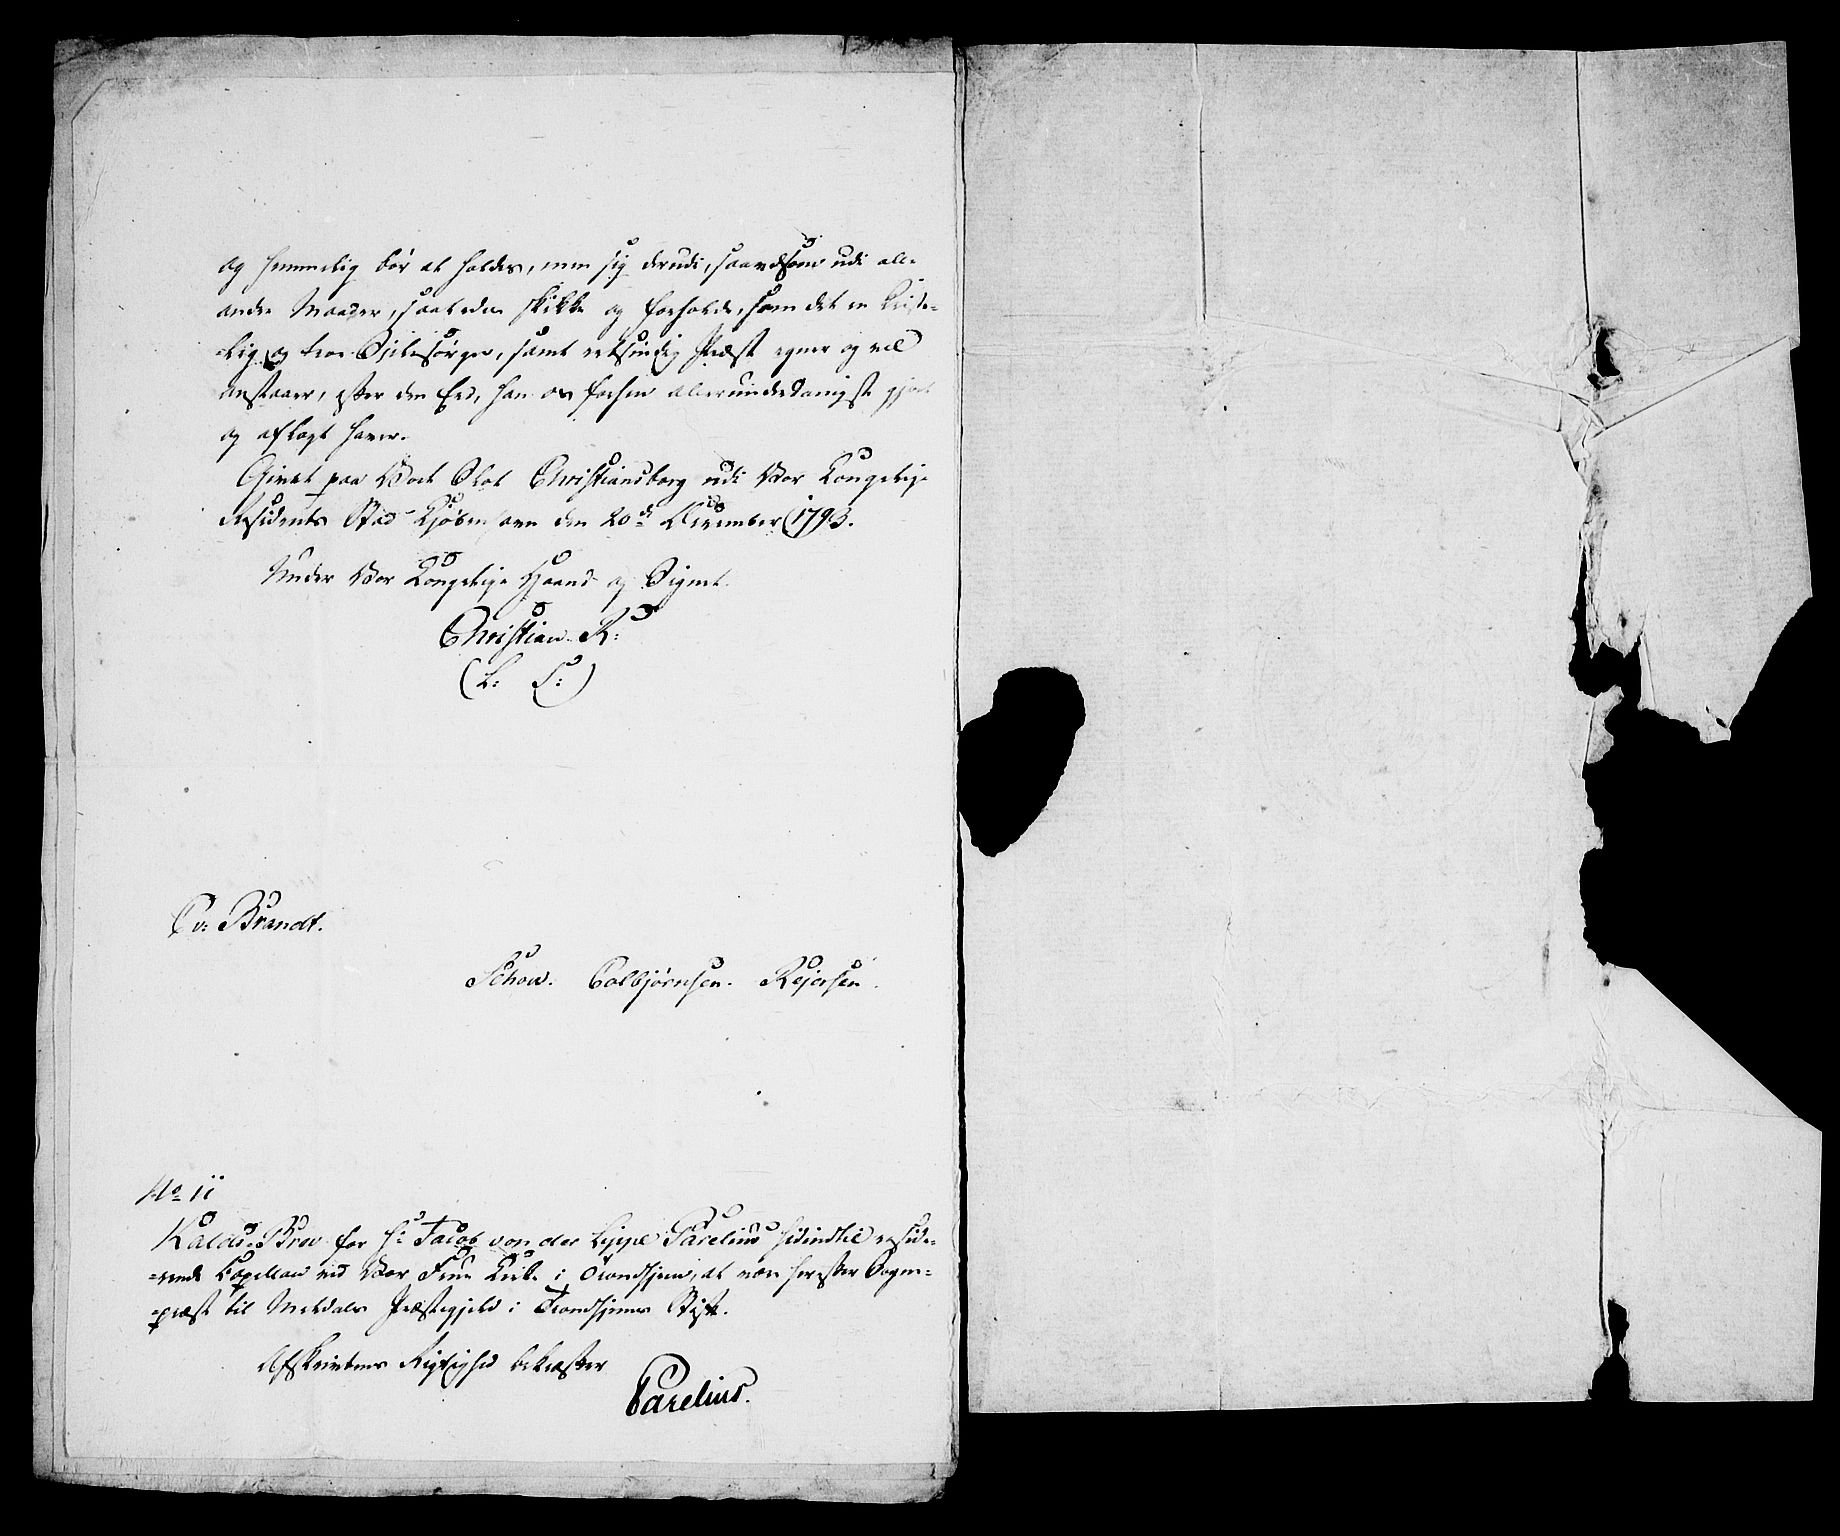 og hemmelig bør at holdes, men sig derudi, saavelsom udi alle
andre Maader, saaledes skikke og forholde, som det en Christe-
-lig og troe Sjelesørger, samt retsindig Præst egner og vel
anstaaer, efter den Eed, han os forhen allerunderdanigst gjort
og aflagt haver.
Givet paa Vort Slot Christiansborg udi Vor Kongelige
Residents Stad Kjøbenhavn den 20de December 1793.
Under Vor Kongelige Haand og Signet.
Christian R:
(L: S:)
C v: Brandt.
Schow. Colbjørnsen. Rejersen.
No 11
Kalds-Brev for Hr Jacob von der Lippe Parelius hidindtil reside-
-rende Capellan ved Vor Frue Kirke i Trondhjem, at være herefter Sogne-
-præst til Meldals Præstegjeld i Trondhjems Stift.
Afskrivtens Rigtighed bekræfter
Parelius.